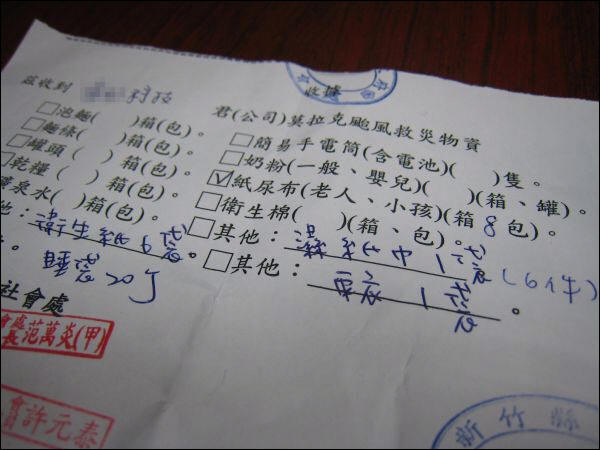 收據
茲收到 科技 君(公司)莫拉克颱風救災物資
泡麵( )箱(包)。 簡易手電筒(含電池)( )隻。
麵條( )箱(包)。 奶粉(一般、嬰兒)( )(箱、罐)。
罐頭( )箱(包)。 紙尿布(老人、小孩)(箱8包)。
乾糧( )箱(包)。 衛生棉( )(箱、包)。
礦泉水( )箱(包)。 其他:濕紙巾1袋(6件)
他:衛生紙6袋。 其他: 1袋。
睡袋20個
社會處
范萬炎(甲)
許元泰
新竹縣